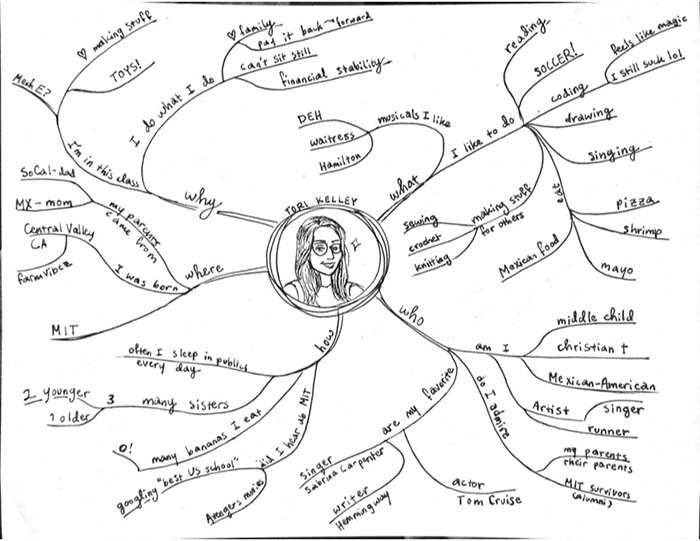 TORI KELLEY
why
I'm in this class
MechE?
♡ making stuff
TOYS!
I do what I do
♡ family
pay it back → forward
can't sit still
financial stability
what
musicals I like
DEH
waitress
Hamilton
I like to do
reading
SOCCER!
coding
feels like magic
I still suck lol
drawing
singing
eat
pizza
shrimp
mayo
Mexican food
making stuff
for others
sewing
crochet
knitting
where
my parents
came from
SoCal-dad
MX-mom
I was born
Central Valley
CA
farm vibez
MIT
how
often I sleep in public
every day
many sisters
3
2 younger
1 older
many bananas I eat
0!
did I hear ab MIT
googling "best US school"
Avengers movies
who
am I
middle child
christian †
Mexican-American
Artist
singer
runner
do I admire
my parents
their parents
MIT survivors
(alumni)
are my favorite
singer
Sabrina Carpenter
writer
Hemmingway
actor
Tom Cruise